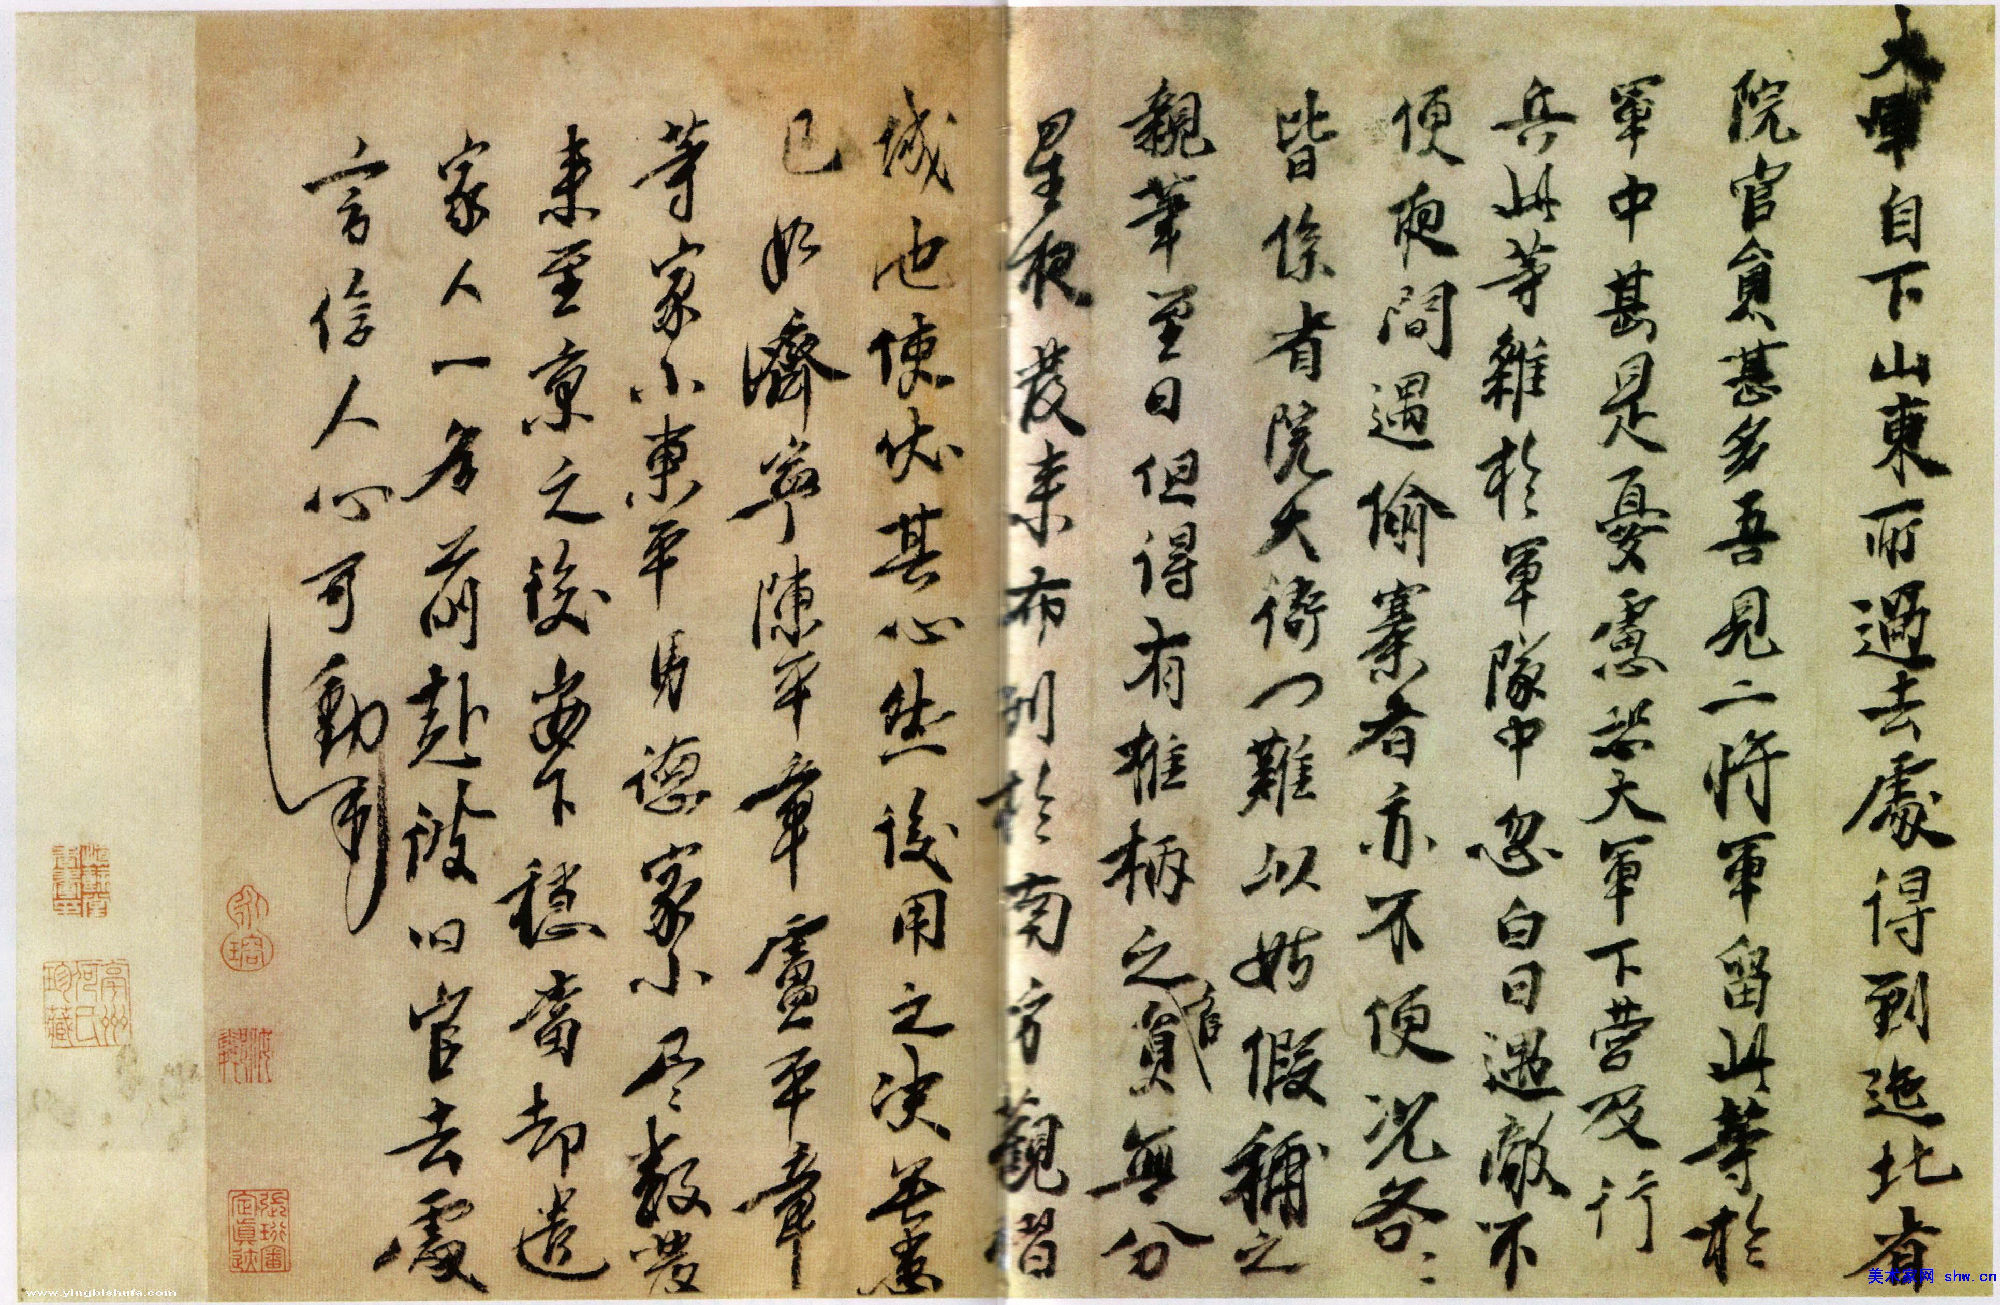 大軍自下山東所過去處得到迤北省
院官員甚多吾見二將軍留此等於
軍中甚是憂慮恐大軍下營及行
兵此等雜於軍隊中忽白日遇敵不
便夜間遇偷寨者亦不便況各各
皆係省院大衙門難以姑假稱之
親筆至日但得有椎柄之官員無分
星夜發來布列於南方觀暜
城池使伏其心然後用之決無患
已如濟寧陳平章盧平章
等家小東平馬德家小尽數發
來至京之後安下穩當却遣
家人一名前赴彼旧官去處
言信人心可動
張珩審定真跡
美术家网 shw.cn
www.yingbishufa.com